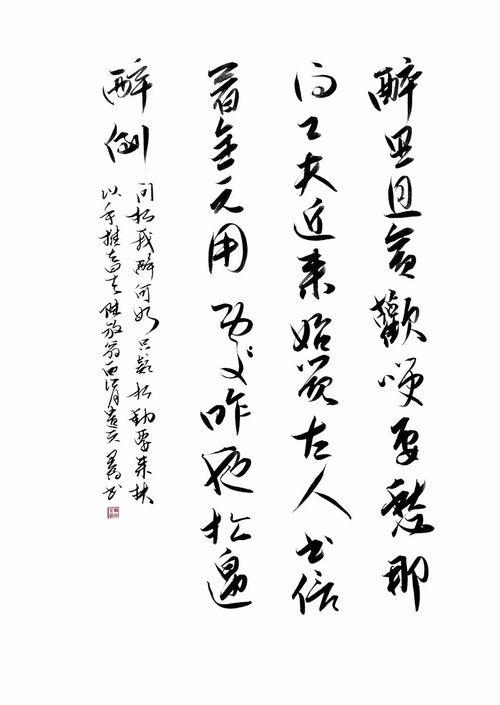 醉里且贪歡咲要愁那
得工夫近来始覺古人书信
着全无用处昨夜松邊
醉倒
问松我醉何如只疑松動要来扶
以手推去陆放翁西江月遣兴书